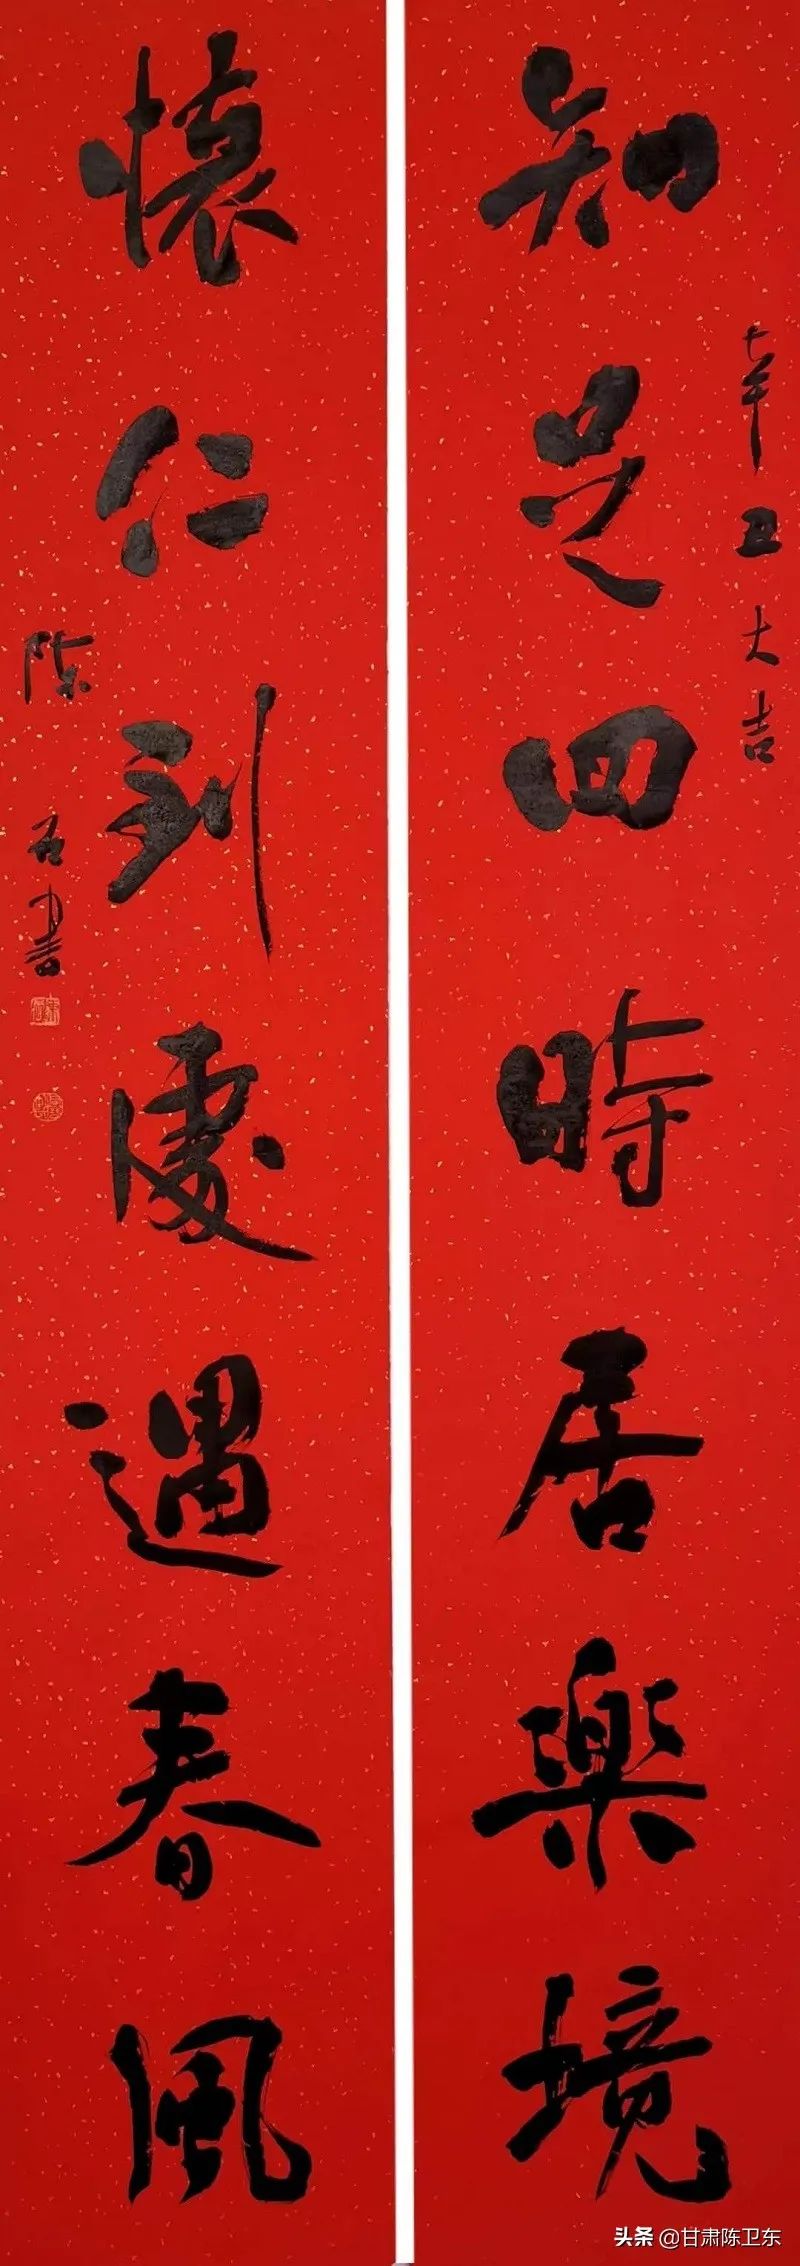 辛丑大吉
知足四時居樂境
懷仁到處遇春風
陈
書
头条 @甘肃陈卫东